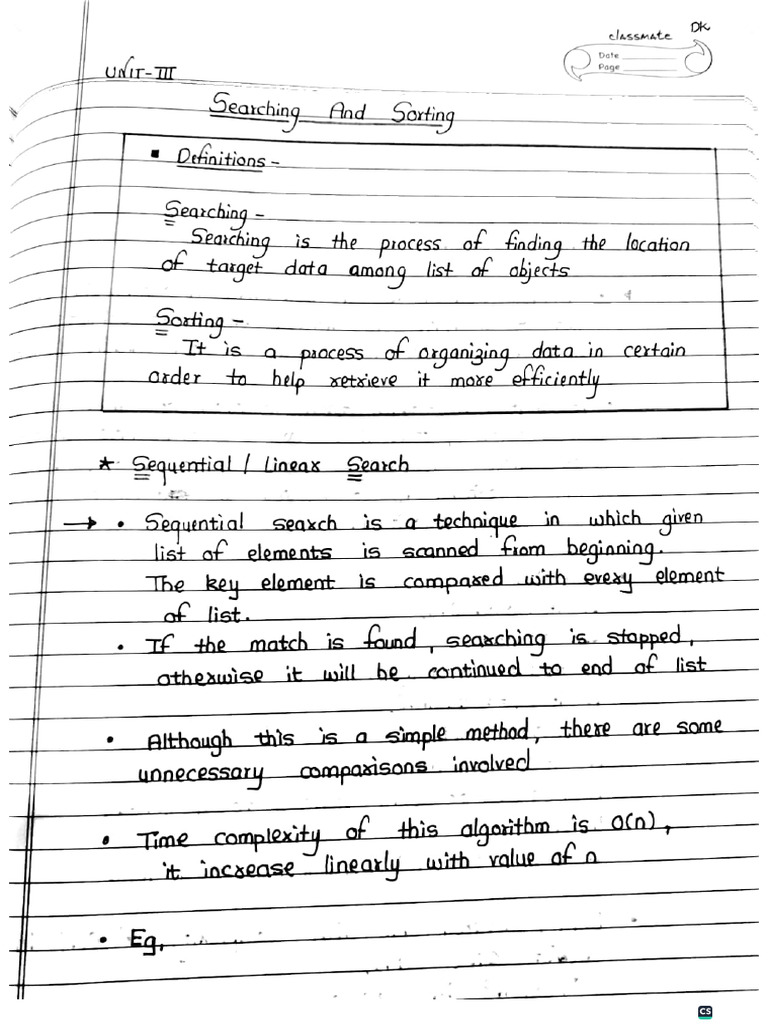 DK
classmate
Date
Page
UNIT-III
Searching And Sorting
▪ Definitions -
Searching -
Searching is the process of finding the location
of target data among list of objects
Sorting -
It is a process of organizing data in certain
order to help retrieve it more efficiently
* Sequential / Linear Search
→ • Sequential search is a technique in which given
list of elements is scanned from beginning.
The key element is compared with every element
of list.
• If the match is found, searching is stopped,
otherwise it will be continued to end of list
• Although this is a simple method, there are some
unnecessary comparisons involved
• Time complexity of this algorithm is O(n),
it increase linearly with value of n
• Eg.
CS